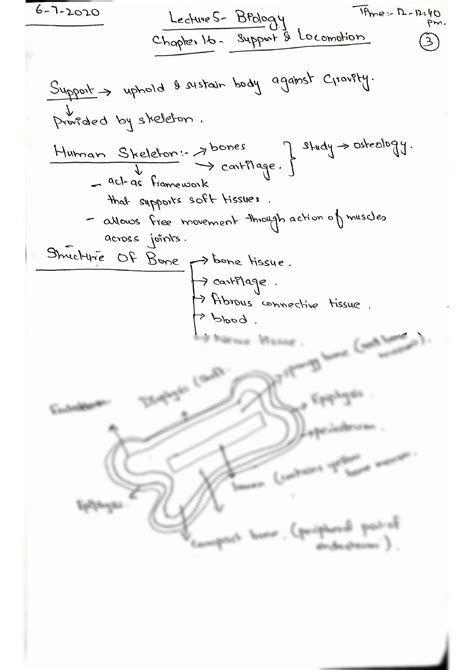 6-7-2020
Lecture 5- Biology
Time:- 12-12:40 pm.
Chapter 16- Support & Locomotion
3
Support → uphold & sustain body against Gravity.
↓
provided by skeleton.
Human Skeleton:- → bones
→ cartilage. } study → osteology.
↓
- act-as framework
that supports soft tissues.
- allows free movement through action of muscles
across joints.
Structure Of Bone → bone tissue.
→ cartilage.
→ fibrous connective tissue.
→ blood.
→ Nerve tissue.
spongy bone (red bone
Diaphysis (shaft.
Epiphysis
periosteum
(contains yellow
bone marrow
Epiphysis.
compact bone. (peripheral part of